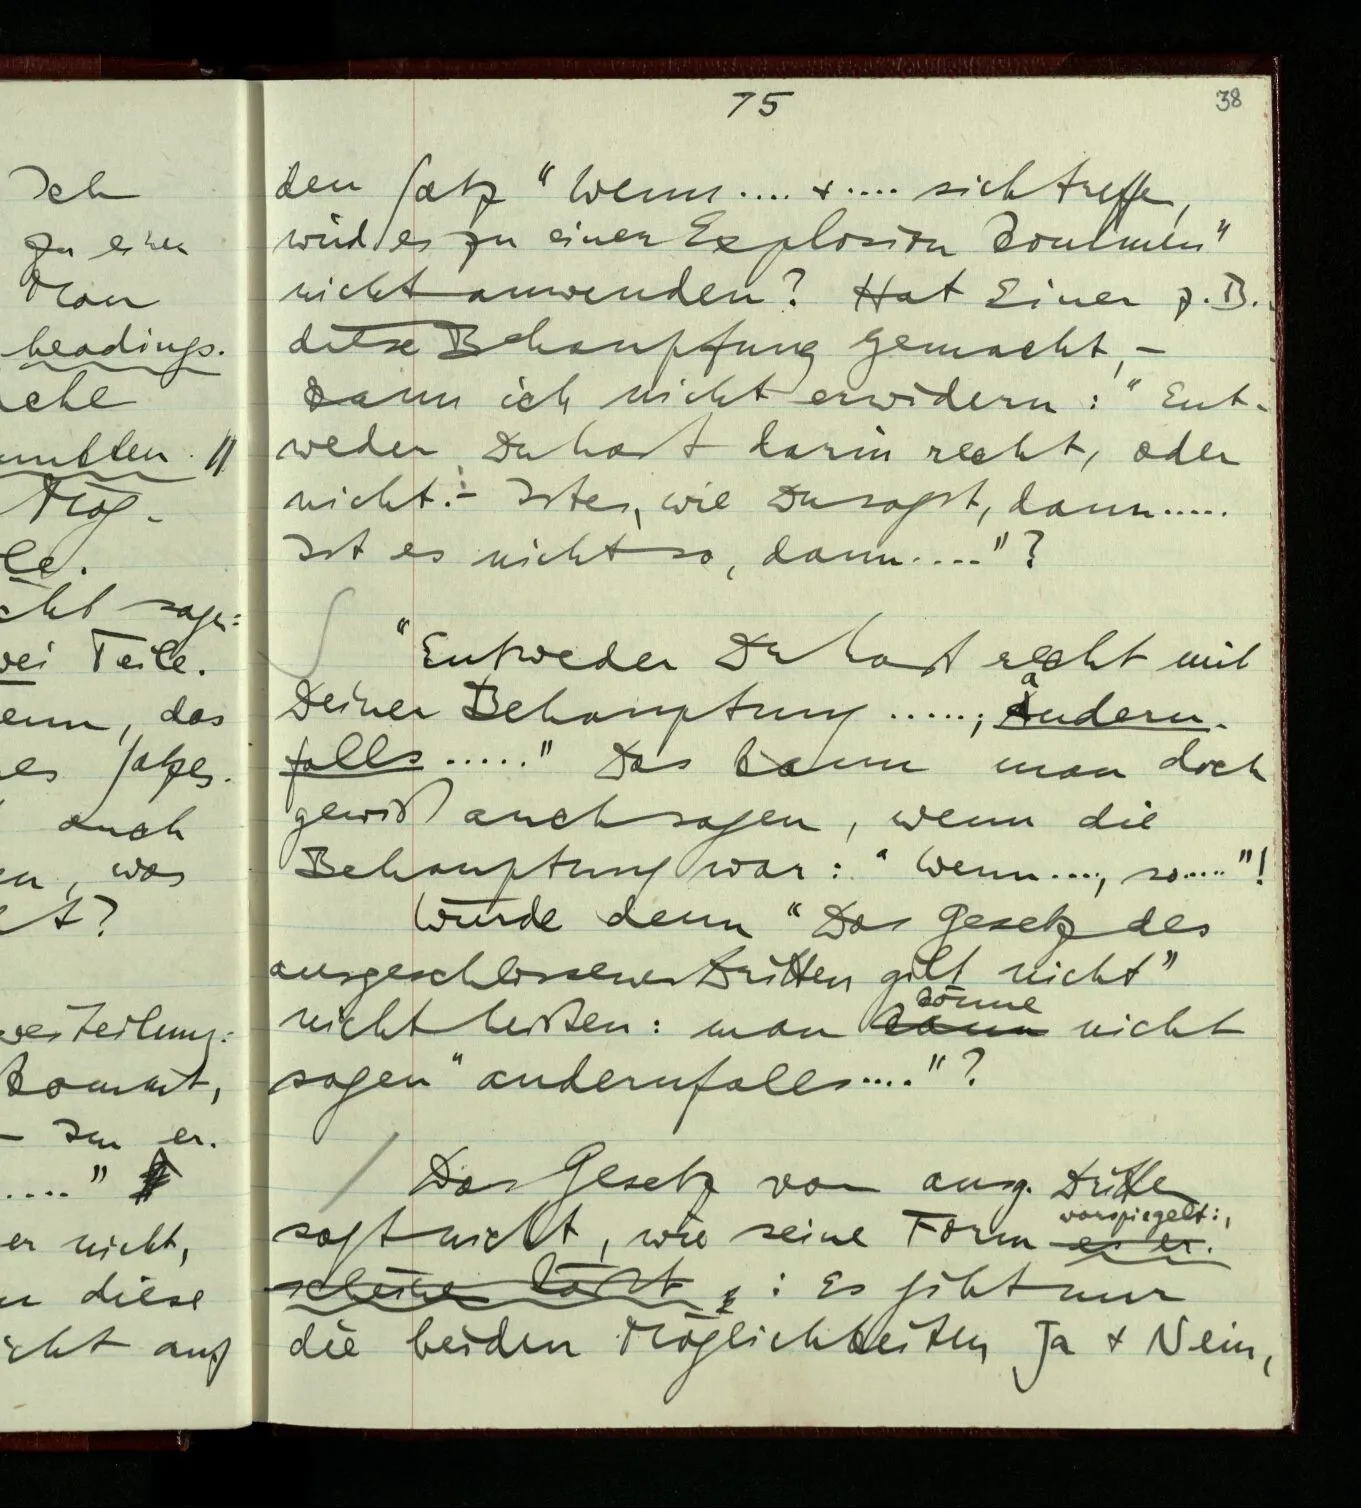 75
38
den Satz "Wenn .... + .... sich treffen,
wird es zu einer Explosion kommen"
nicht anwenden? Hat Einer z.B.
diese Behauptung gemacht, –
kann ich nicht erwidern: "Ent-
weder Du hast darin recht, oder
nicht: – Ist es, wie Du sagst, dann .....
Ist es nicht so, dann ...."?
"Entweder Du hast recht mit
Deiner Behauptung ....., andern-
falls ....." Das kann man doch
gewiß auch sagen, wenn die
Behauptung war: "Wenn ...., so ...."!
Würde denn "Das Gesetz des
ausgeschlossenen Dritten gilt nicht"
könne
nicht heißen: man kann nicht
sagen "andernfalls...."?
Das Gesetz vom ausg. Dritten
vorspiegelt:,
sagt nicht, wie seine Form es er-
scheinen läßt, : Es gibt nur
die beiden Möglichkeiten Ja + Nein,
Ich
zu einer
Man
headings.
Mög-
sagen:
zwei Teile.
wenn, das
Satzes-
auch
was
kommt,
– Im er-
....."
er nicht,
diese
auf